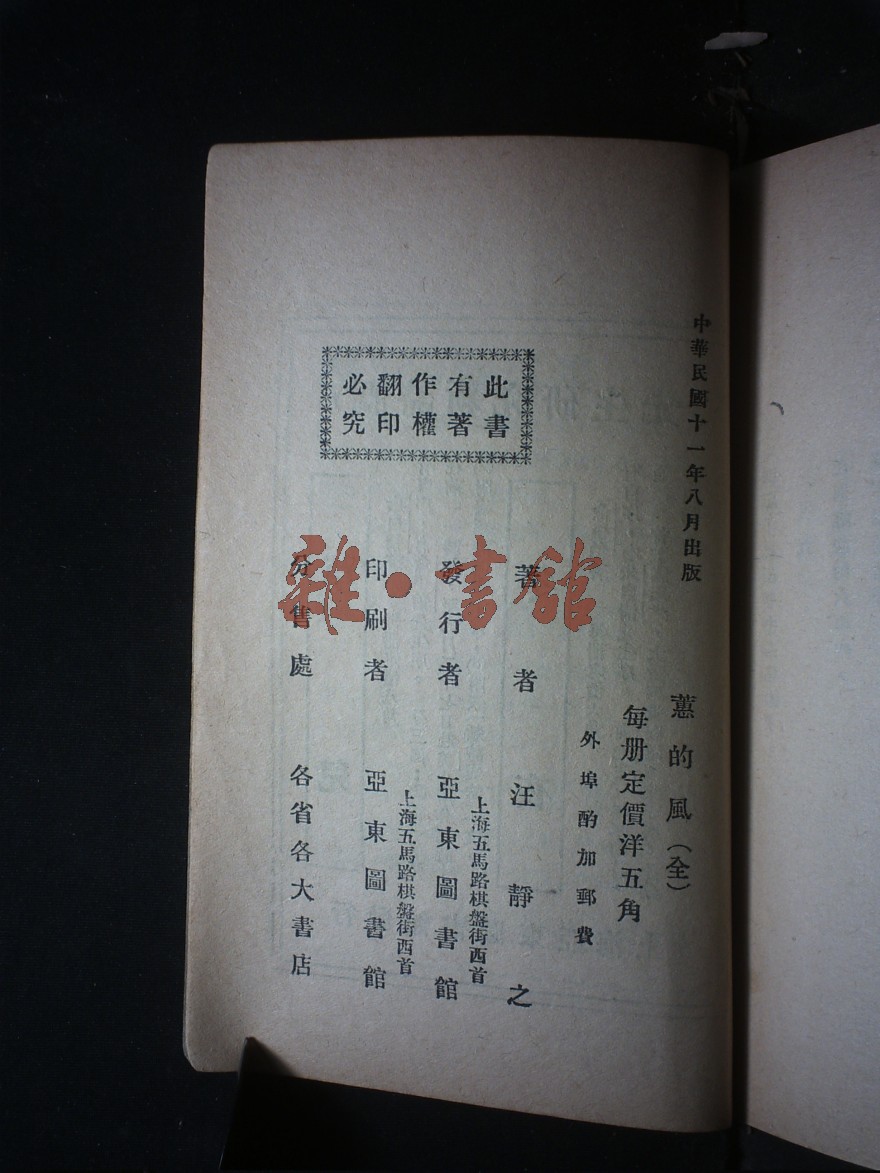 中華民國十一年八月出版
蕙的風（全）
每册定價洋五角
外埠酌加郵費
著者 汪靜之
上海五馬路棋盤街西首
發行者 亞東圖書館
上海五馬路棋盤街西首
印刷者 亞東圖書館
分售處 各省各大書店
此書
有著
作權
翻印
必究
雜·書館